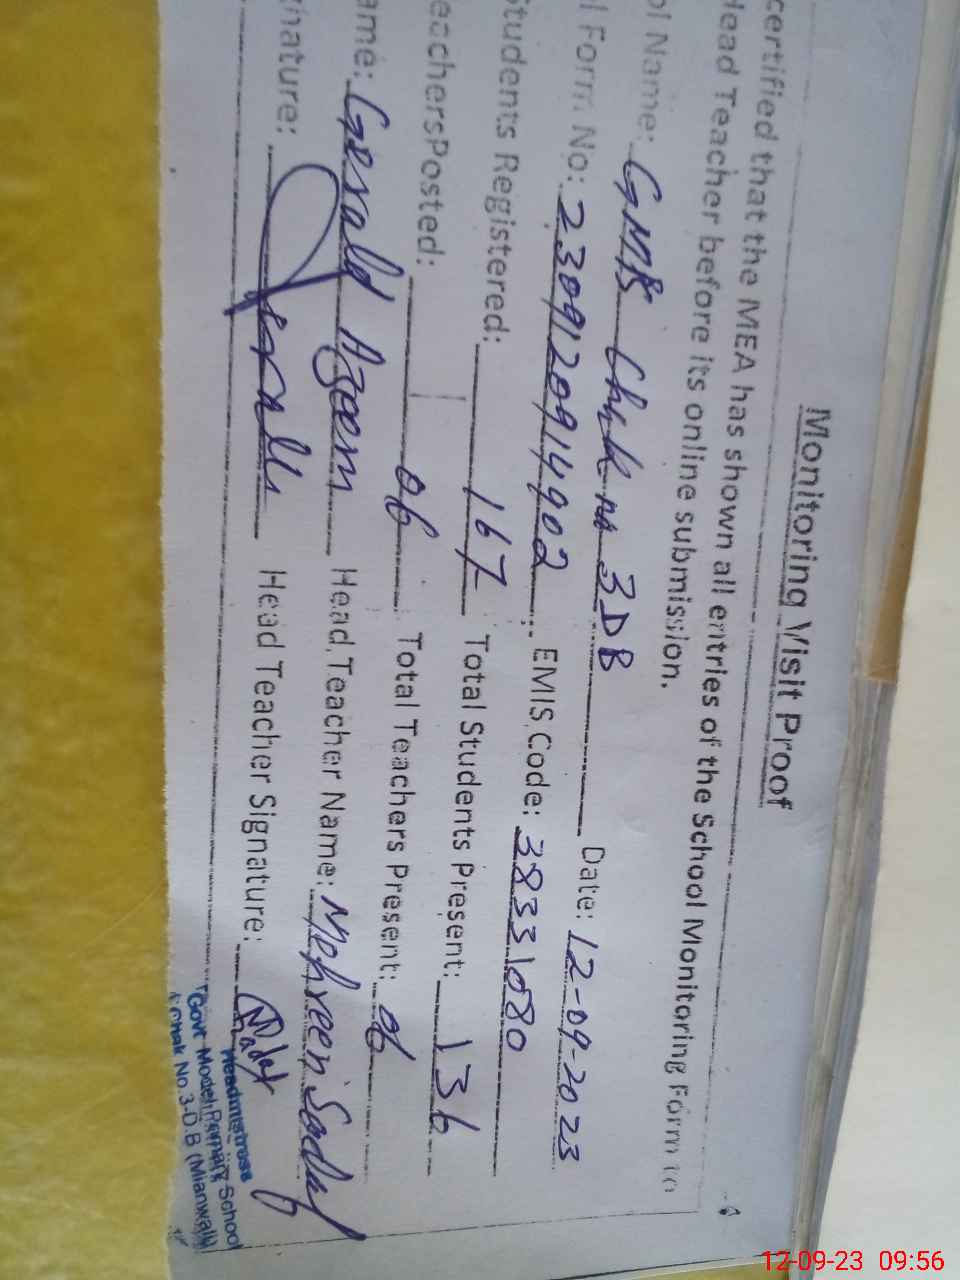 Monitoring Visit Proof
certified that the MEA has shown all entries of the School Monitoring Form to
Head Teacher before its online submission.
ol Name: GMPS Chak no 3DB Date: 12-09-2023
l Form No: 23091209144902 EMIS Code: 38331080
Students Registered: 167 Total Students Present: 136
eachersPosted: 06 Total Teachers Present: 06
ame: Gerald Azeem Head Teacher Name: Mehreen Sadaf
nature: Gerald Head Teacher Signature: Sadaf
Headmistress
Govt Model Primary School
Chak No 3-D.B (Mianwali)
12-09-23 09:56